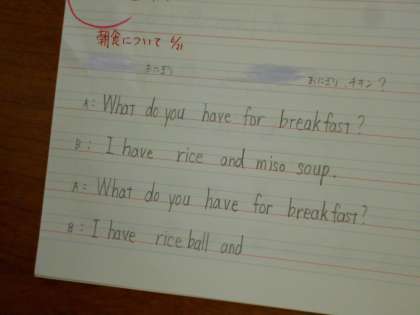 朝食について 6/21
おにぎり
おにぎり、チキン?
A: What do you have for breakfast?
B: I have rice and miso soup.
A: What do you have for breakfast?
B: I have rice ball and